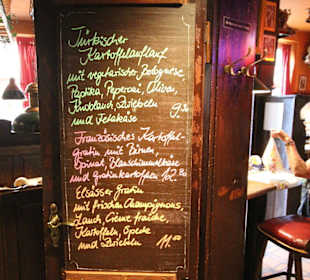 Türkischer
Kartoffelauflauf
mit vegetarischer Bolognese,
Paprika, Peperoni, Oliven,
Knoblauch, Zwiebeln
und Fetakäse 9.80
Französisches Kartoffel-
gratin mit Birnen
Spinat, Blauschimmelkäse
und Gratinkartoffeln 12.80
Elsässer Gratin
mit frischen Champignons,
Lauch, Creme fraiche,
Kartoffeln, Speck
und Zwiebeln 11.00